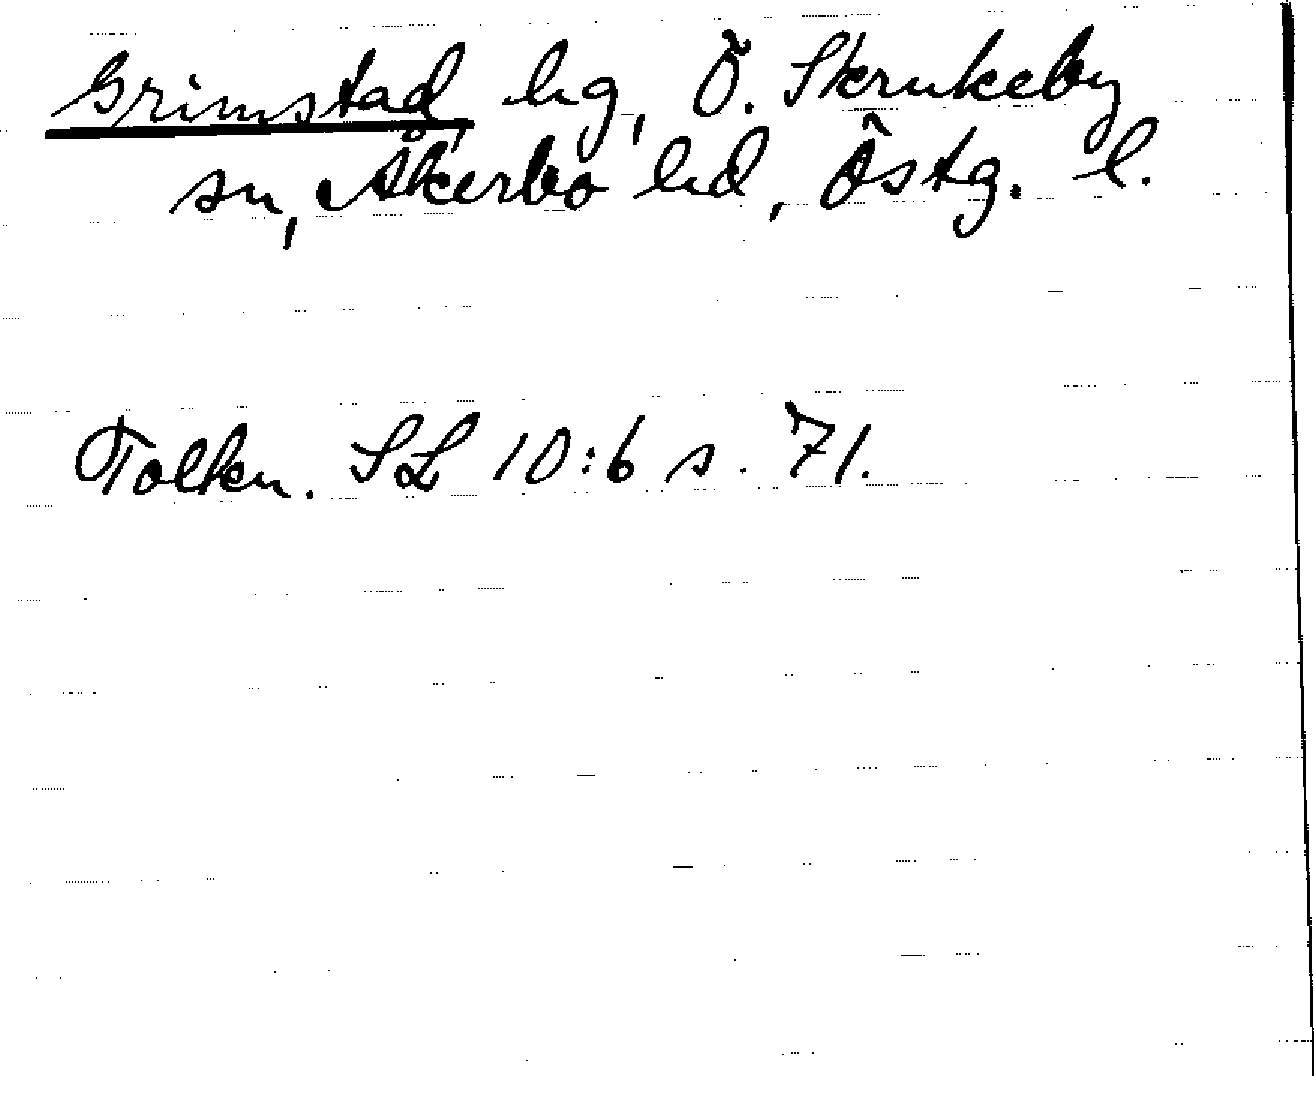 Grimstad, hg, Ö. Skrukeby
sn, Åkerbo hd, Östg. l.
Tolkn. SL 10:6 s. 71.